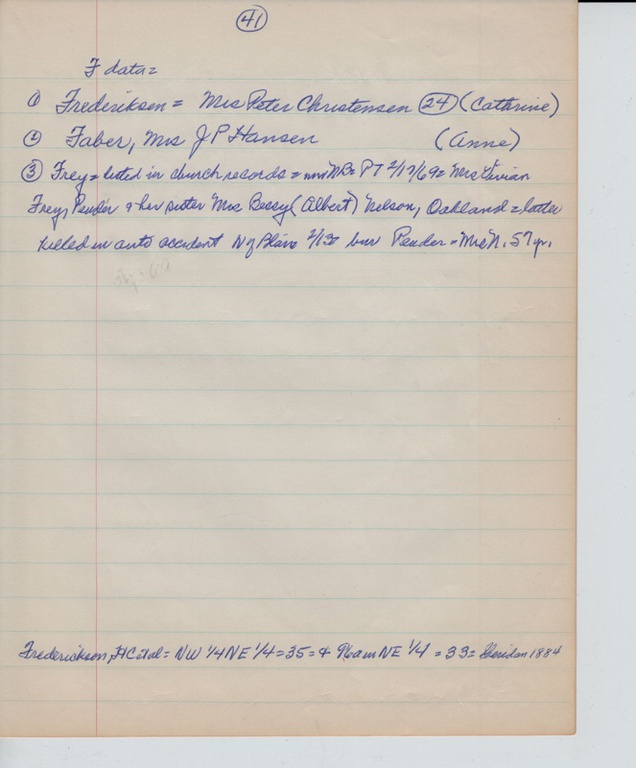 41
F data =
① Frederiksen = Mrs Peter Christensen 24 (Cathrine)
② Faber, Mrs J P Hansen (Anne)
③ Frey = listed in church records = PT 2/17/69 = Mrs Vivian
Frey, Pender & her sister Mrs Bessy (Albert) Nelson, Oakland = latter
killed in auto accident N of 2/13 bur Pender = Mrs N. 57 yr.
Frederickson, H C et al = NW 1/4 NE 1/4 = 35 = & NE 1/4 = 33 = Sheridan 1884